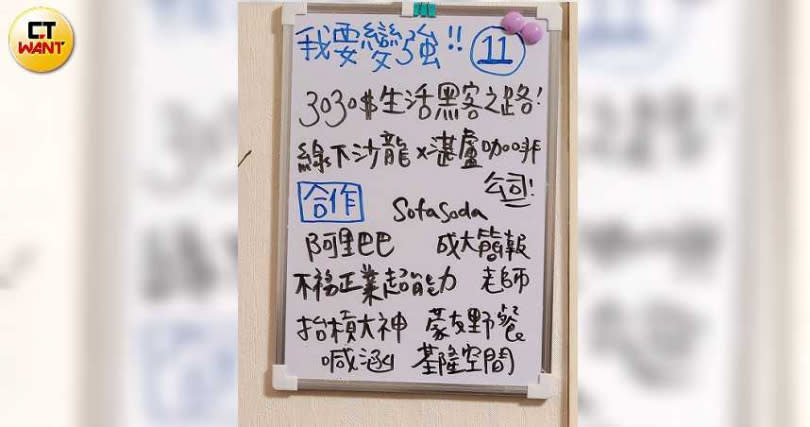 CT
WANT
我要變強!! 11
3030$生活黑客之路!
線下沙龍x湛盧咖啡
公司!
合作 SofaSoda
阿里巴巴 成大簡報
不務正業超能力 老師
抬槓大神 蒙友野餐
喊涵 基隆空間